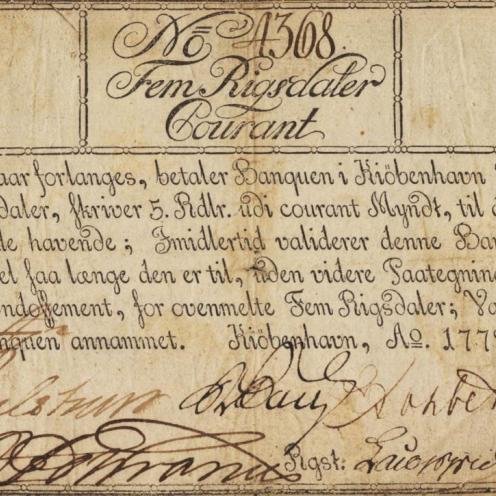 No 4368.
Fem Rigsdaler
Courant
aar forlanges, betaler Banquen i Kiöbenhavn
daler, skriver 5. Rdlr. udi courant Myndt, til
de havende; Imidlertid validerer denne Ban
el saa længe den er til, uden videre Paategning
endossement, for ovenmelte Fem Rigsdaler; Va
nquen annammet. Kiöbenhavn, Ao. 177
Rgst: